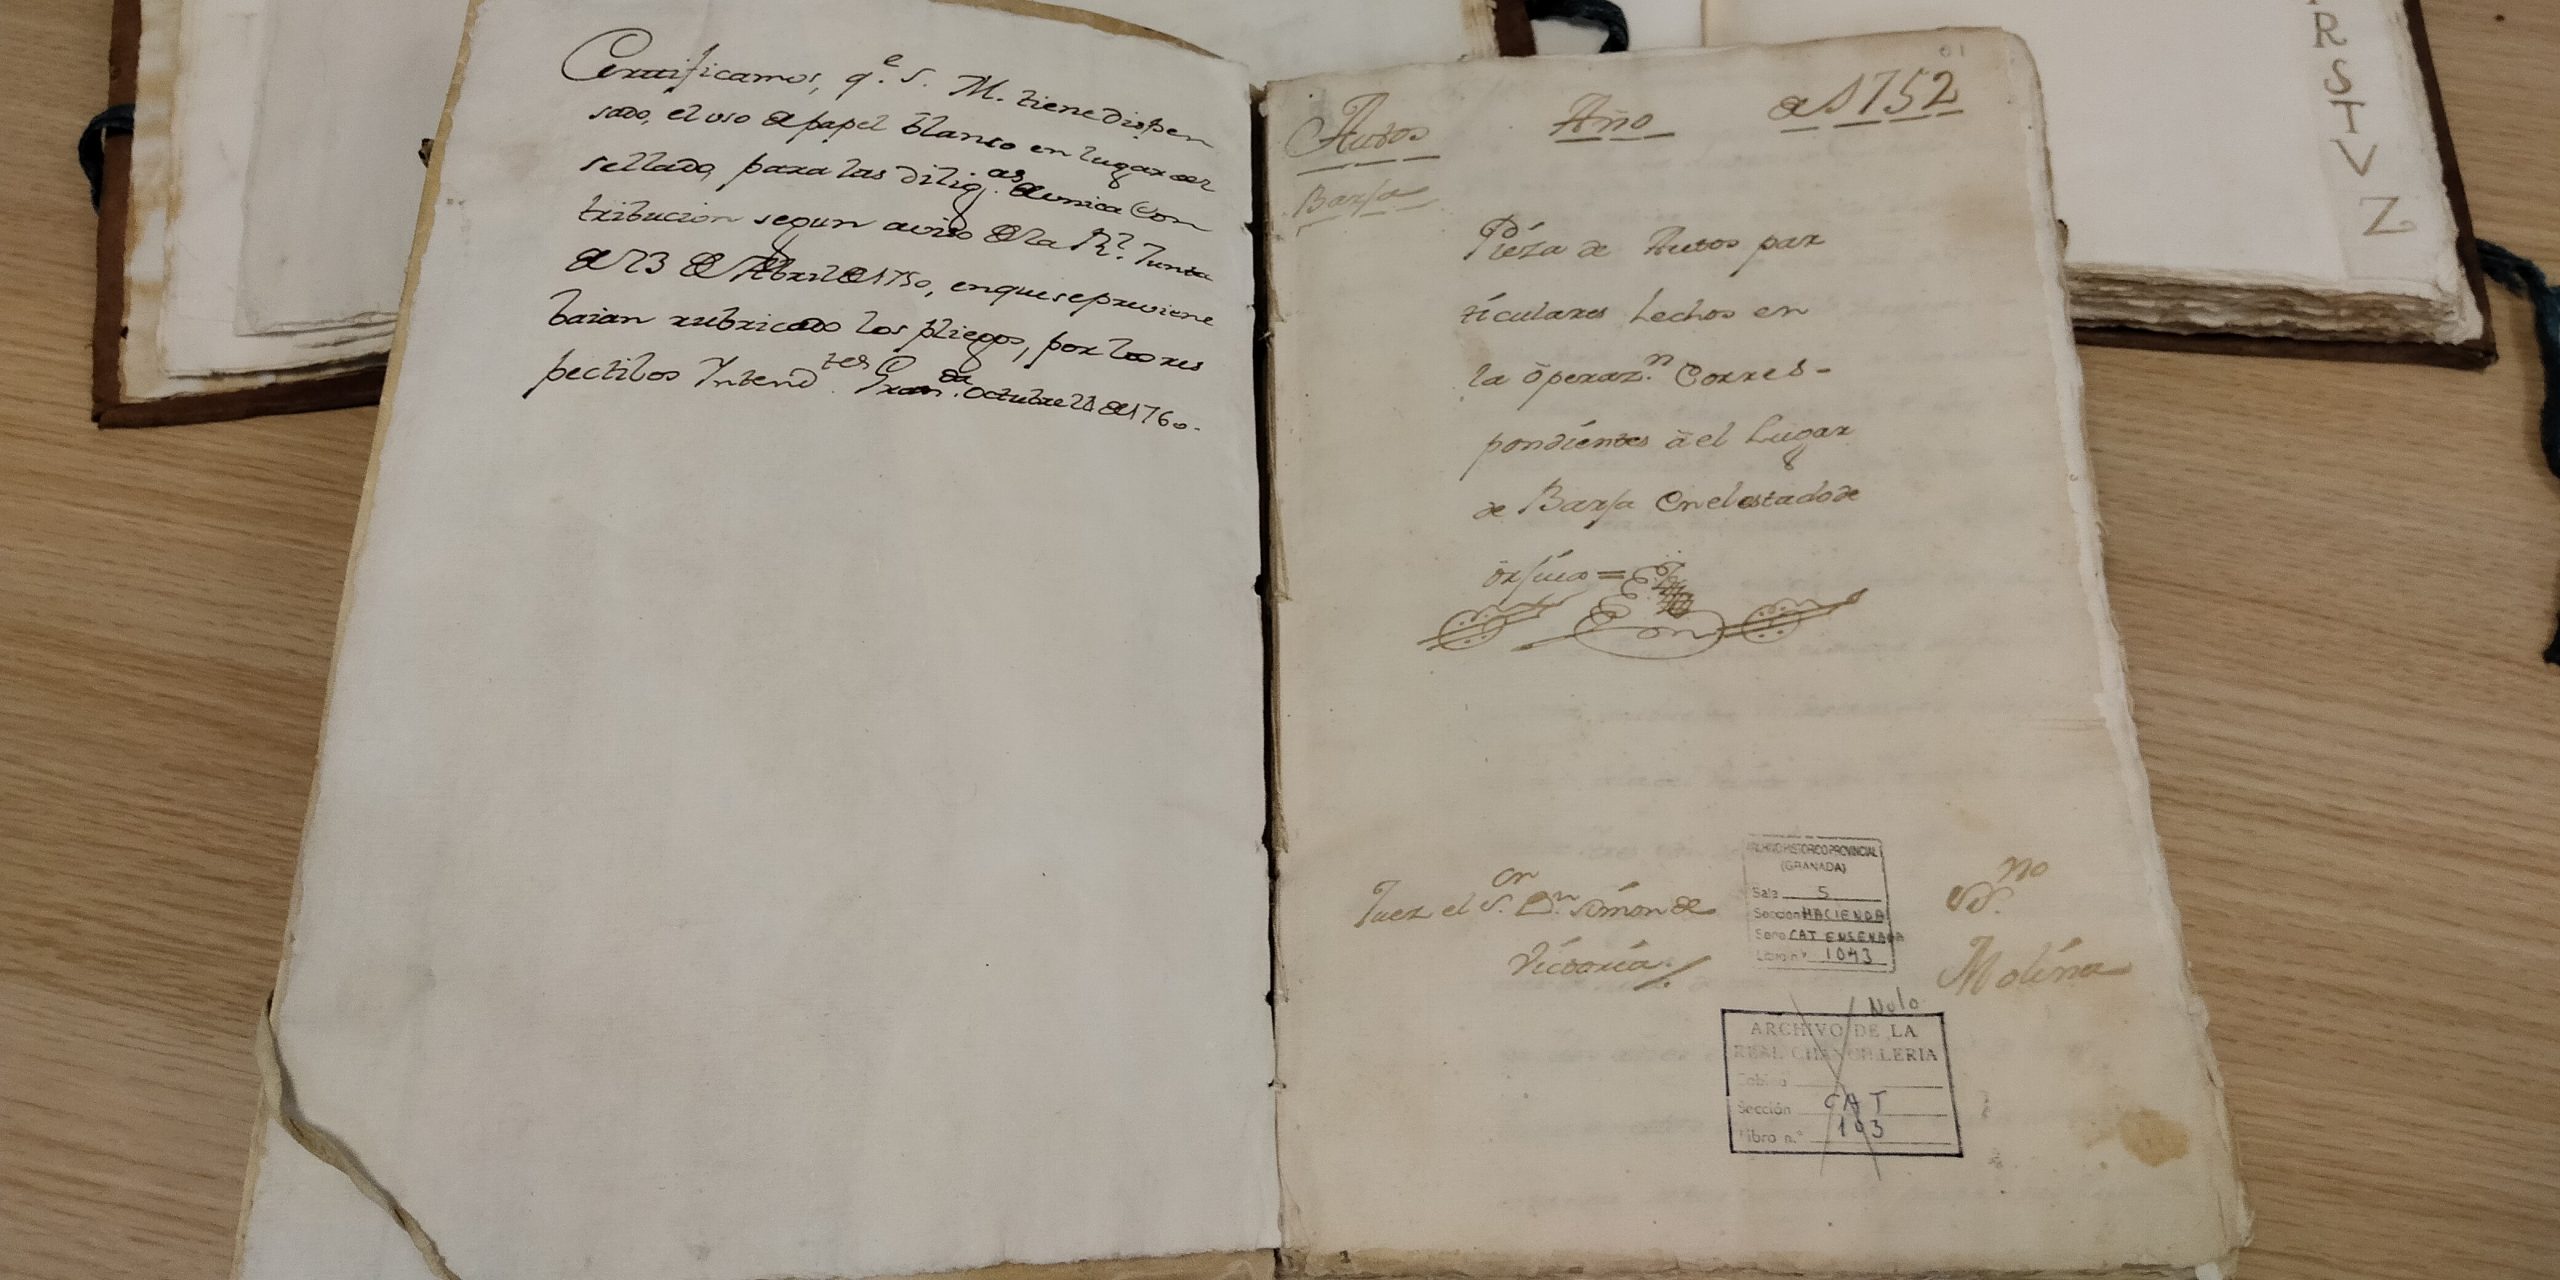 Certificamos, q.e S. M. tiene dispen
sado, el uso de papel blanco en lugar del
sellado, para las dilig.as de unica Con
tribucion segun aviso de la R.l Junta
de 23 de Abril de 1750, en que se previene
baian rubricado los pliegos, por los res
pectibos Yntend.tes Gran.da Octubre 28 de 1760.
01
Autos Año de 1752
Barja
Pieza de Autos par
ticulares hechos en
la operaz.n Corres-
pondientes á el Lugar
de Barja en el estado de
orjiua =
Juez el S.or D.n Simon de
Victoria
SS.no
Molina
ARCHIVO HISTORICO PROVINCIAL
(GRANADA)
Sala 5
Sección HACIENDA
Serie CAT ENSENADA
Libro n.º 1043
Nulo
ARCHIVO DE LA
REAL CHANCILLERIA
Cabina
Sección CAT
Libro n.º 103
R
S
T
V
Z